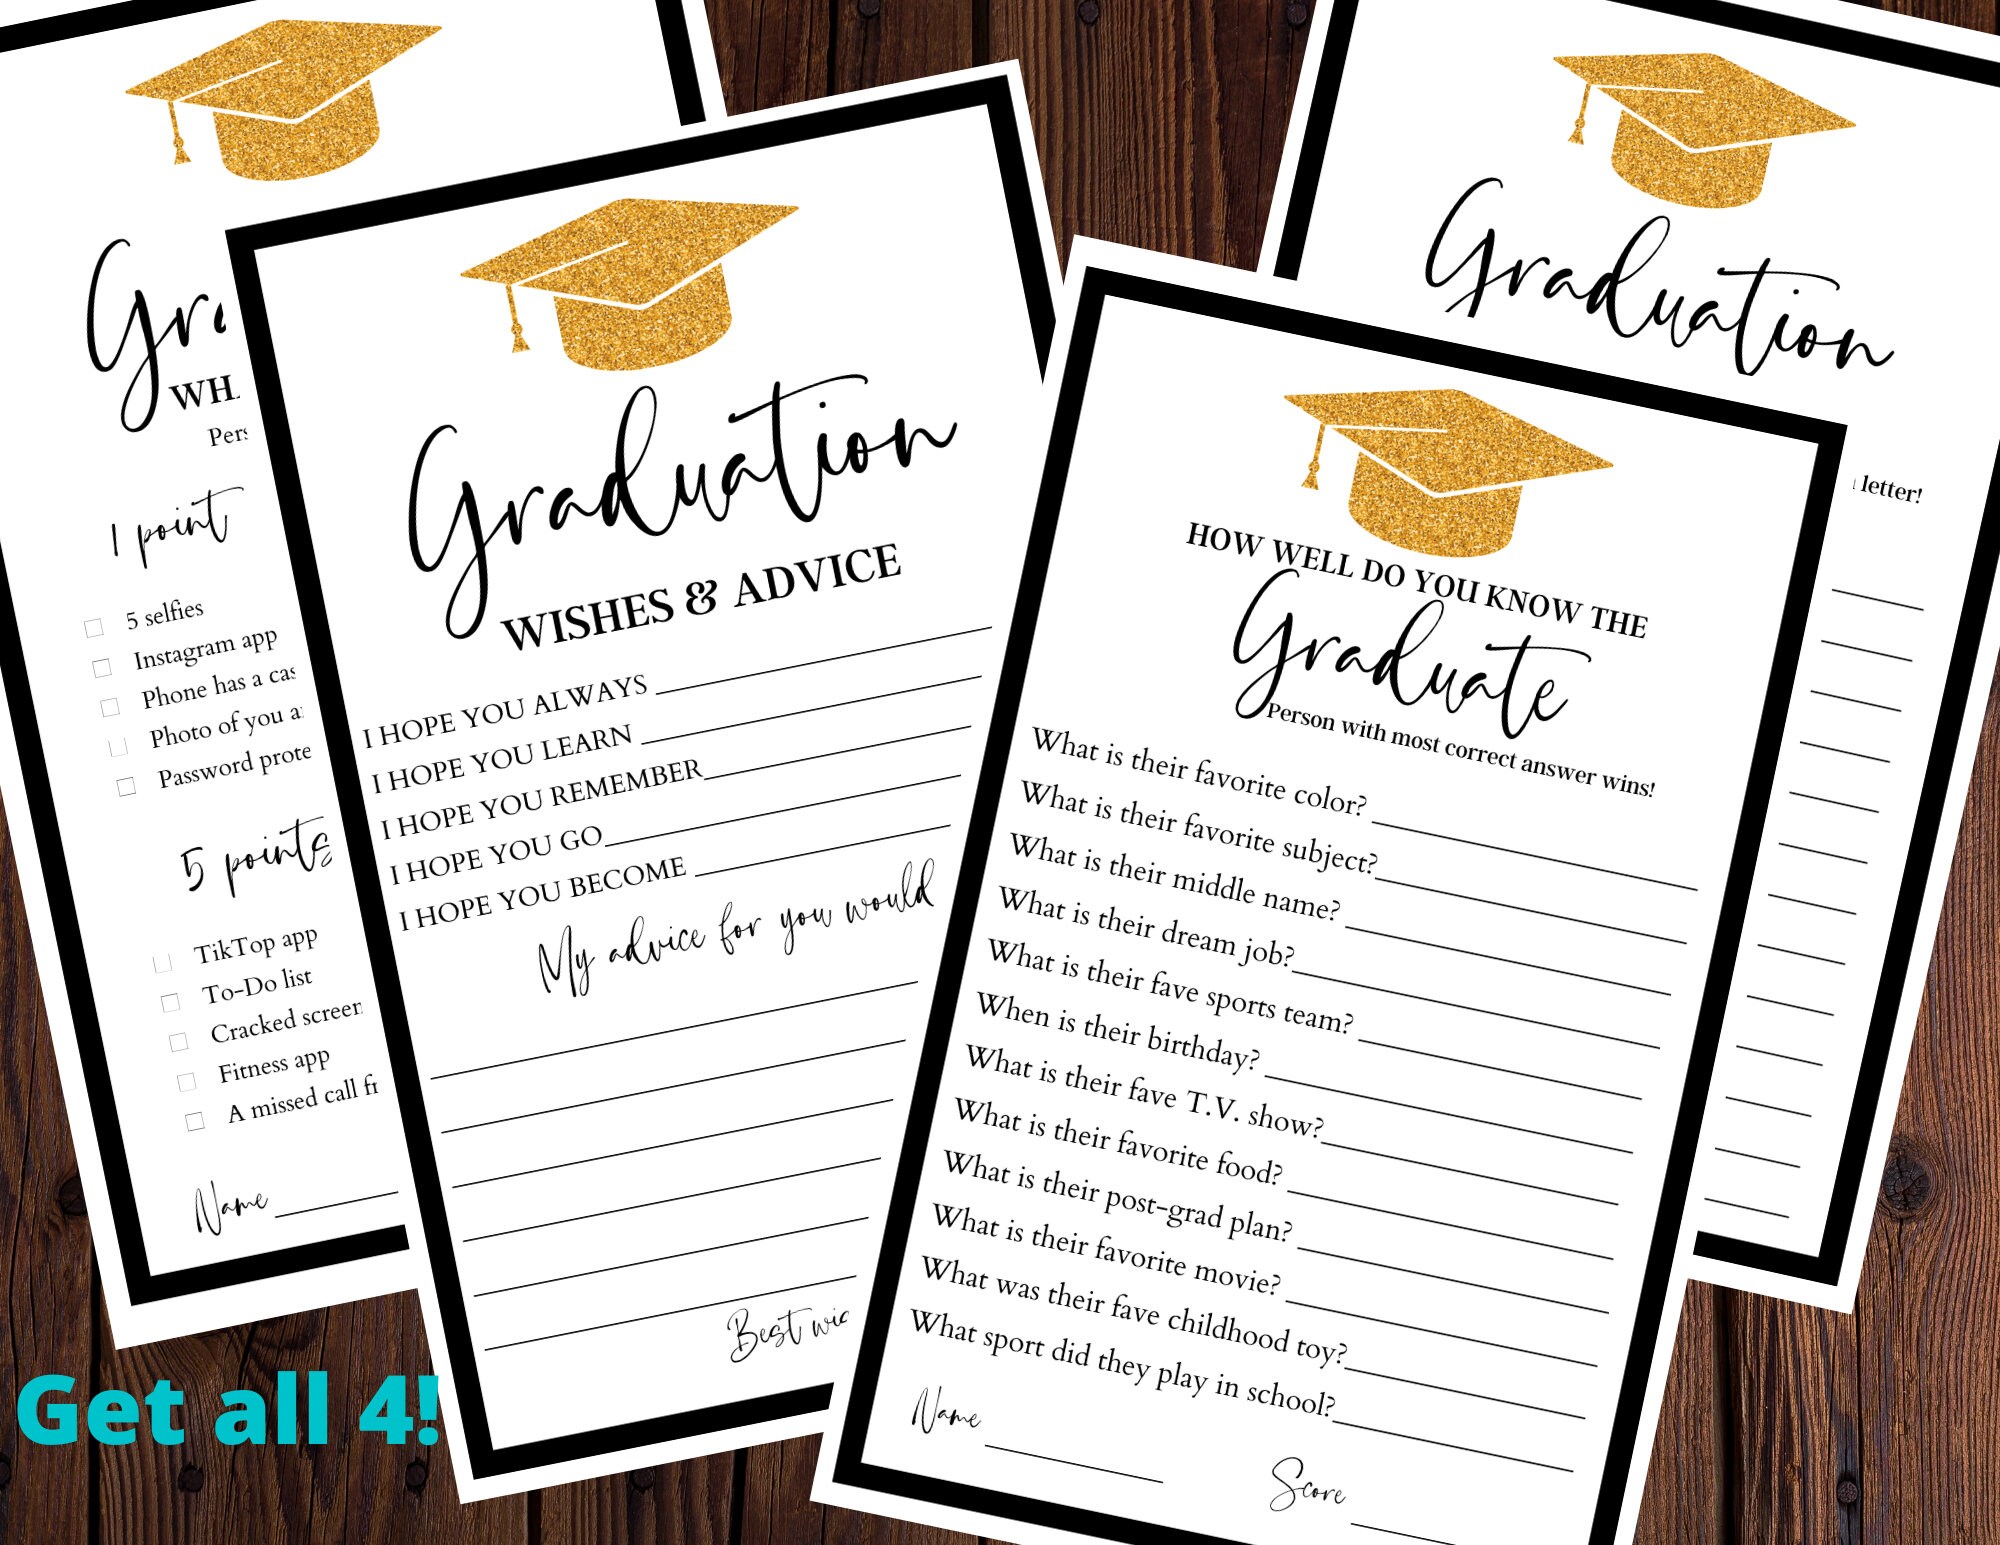 WHA
1 point
5 selfies
Instagram app
Phone has a
Photo of you
Password
5 points
TikTop app
To-Do list
Cracked screen
Fitness app
A missed call
Name
Graduation
WISHES & ADVICE
I HOPE YOU ALWAYS
I HOPE YOU LEARN
I HOPE YOU REMEMBER
I HOPE YOU GO
I HOPE YOU BECOME
My advice for you would
Best
HOW WELL DO YOU KNOW THE
Graduate
Person with most correct answer wins!
What is their favorite color?
What is their favorite subject?
What is their middle name?
What is their dream job?
What is their fave sports team?
When is their birthday?
What is their fave T.V. show?
What is their favorite food?
What is their post-grad plan?
What is their favorite movie?
What was their fave childhood toy?
What sport did they play in school?
Name
Score
Graduation
letter!
Get all 4!